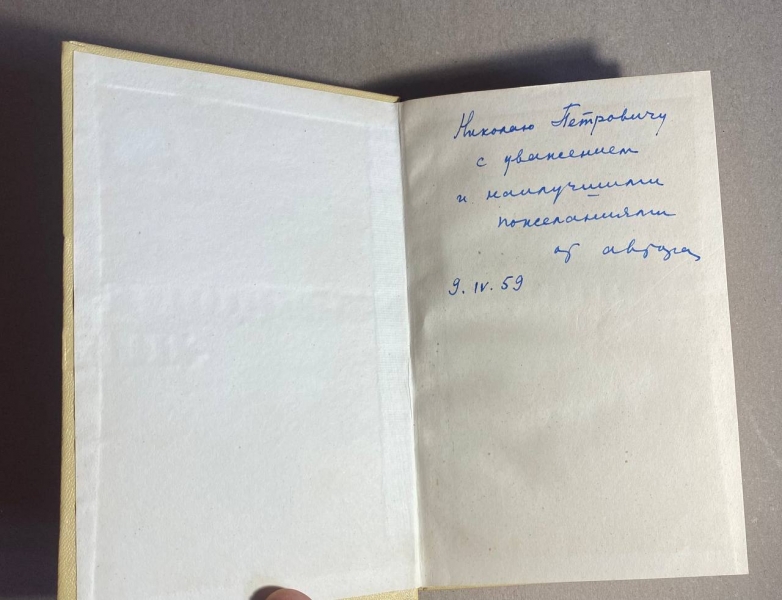 Николаю Петровичу
с уважением
и наилучшими
пожеланиями
от автора
9.IV.59